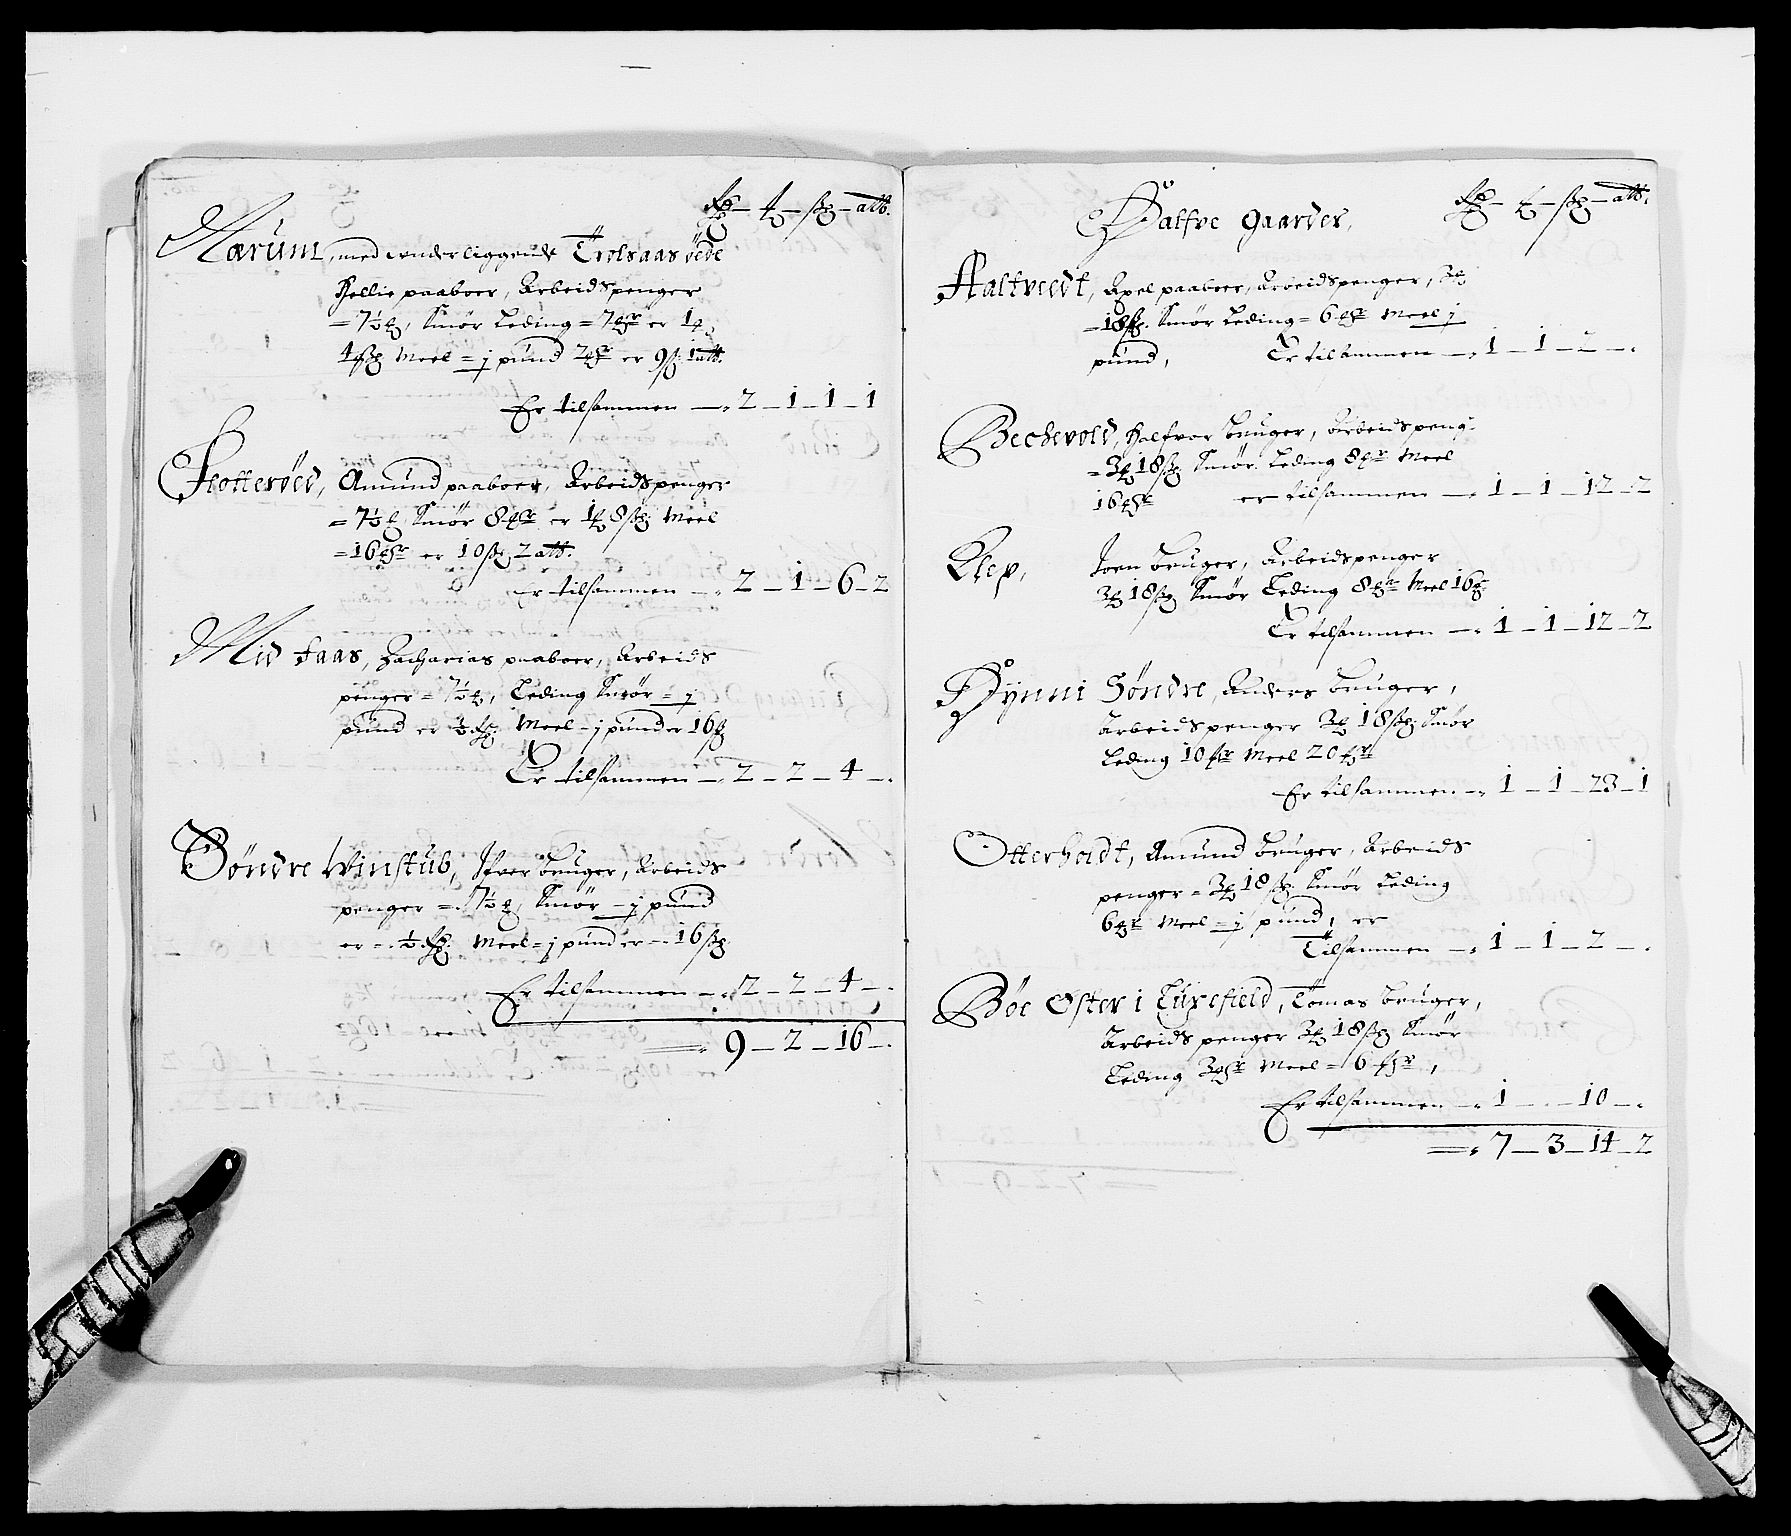 Rdr – ort – sk – alb.
Marum, med underliggende Trolsaas øede
Hellie paaboer, Arbeidspenger
= 7½ ort, Smör Leding = 7 mkr er 1 ort
4 sk Meel = j pund 2 mkr er 9 sk 1 alb.
Er tilsammen — 2 – 1 – 1 – 1
Flotterøed, Amund paaboer, Arbeidspenger
= 7½ ort Smör 8 mkr er 1 ort 8 sk Meel
= 16 mkr er 10 sk 2 alb.
er tilsammen — 2 – 1 – 6 – 2
Mid Faas, Zacharias paaboer, Arbeids
penger = 7½ ort, Leding Smör = j
pund er ½ Rdr Meel = j pund er 16 sk
Er tilsammen — 2 – 2 – 4 – .
Söndre Winstub, Ifver bruger, Arbeids
penger = 7½ ort, Smör = j pund
er = ½ Rdr. Meel = j pund er = 16 sk.
Er tilsammen — 2 – 2 – 4 – .
= 9 – 2 – 16 – .
Rdr – ort – sk – alb.
Halfve gaarder,
Aaltvedt, Axel paaboer, Arbeidspenger, 3 ort
= 18 sk. Smör Leding = 6 mkr Meel j
pund, Er tilsammen — 1 – 1 – 2 – .
Bechevold, Halfvor bruger, Arbeidspeng
= 3 ort 18 sk Smör Leding 8 mkr Meel
16 mkr er tilsammen — 1 – 1 – 12 – 2
Klep, Joen bruger, Arbeidspenger
3 ort 18 sk Smör Leding 8 mkr Meel 16 mkr
Er tilsammen — 1 – 1 – 12 – 2
Hynni Söndre, Anders bruger,
Arbeidspenger 3 ort 18 sk Smör
Leding 10 mkr Meel 20 mkr
Er tilsammen — 1 – 1 – 23 – 1
Otterholdt, Amund bruger, Arbeids
penger = 3 ort 18 sk. Smör Leding
6 mkr Meel = j pund, er
Tilsammen — 1 – 1 – 2 – .
Böe Øster i Luxefield, Tomas bruger,
Arbeids penger 3 ort 18 sk Smör
Leding 3 mkr Meel = 6 mkr,
Er tilsammen — 1 – . – 10 – .
= 7 – 3 – 14 – 2